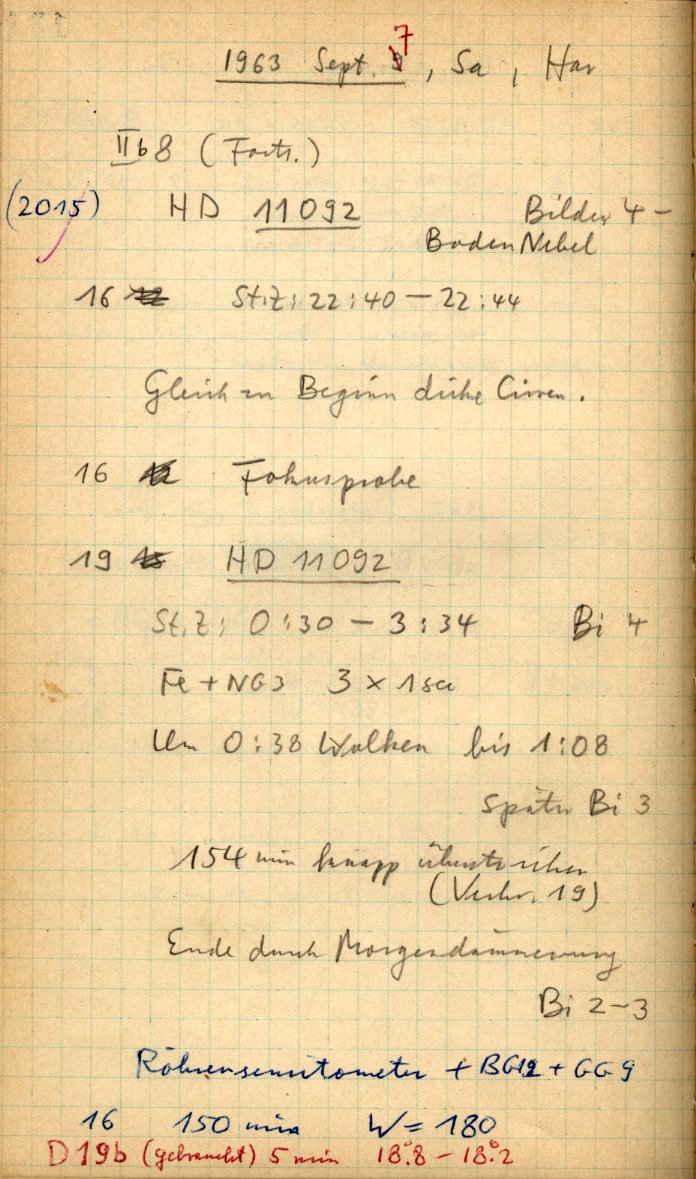 1963 Sept. 7, Sa, Har
IIb8 (Forts.)
(2015) HD 11092 Bilder 4-
Boden Nebel
16 St.Z: 22:40 – 22:44
Gleich zu Beginn dicke Cirren.
16 Fokusprobe
19 HD 11092
St.Z: 0:30 – 3:34 Bi 4
Fe + NG3 3 x 1
Um 0:38 Wolken bis 1:08
später Bi 3
154 min knapp
19)
Ende durch Morgendämmerung
Bi 2-3
Röhrensensitometer + BG12 + GG9
16 150 min W = 180
D19b (gebraucht) 5 min 18°.8 – 18°.2